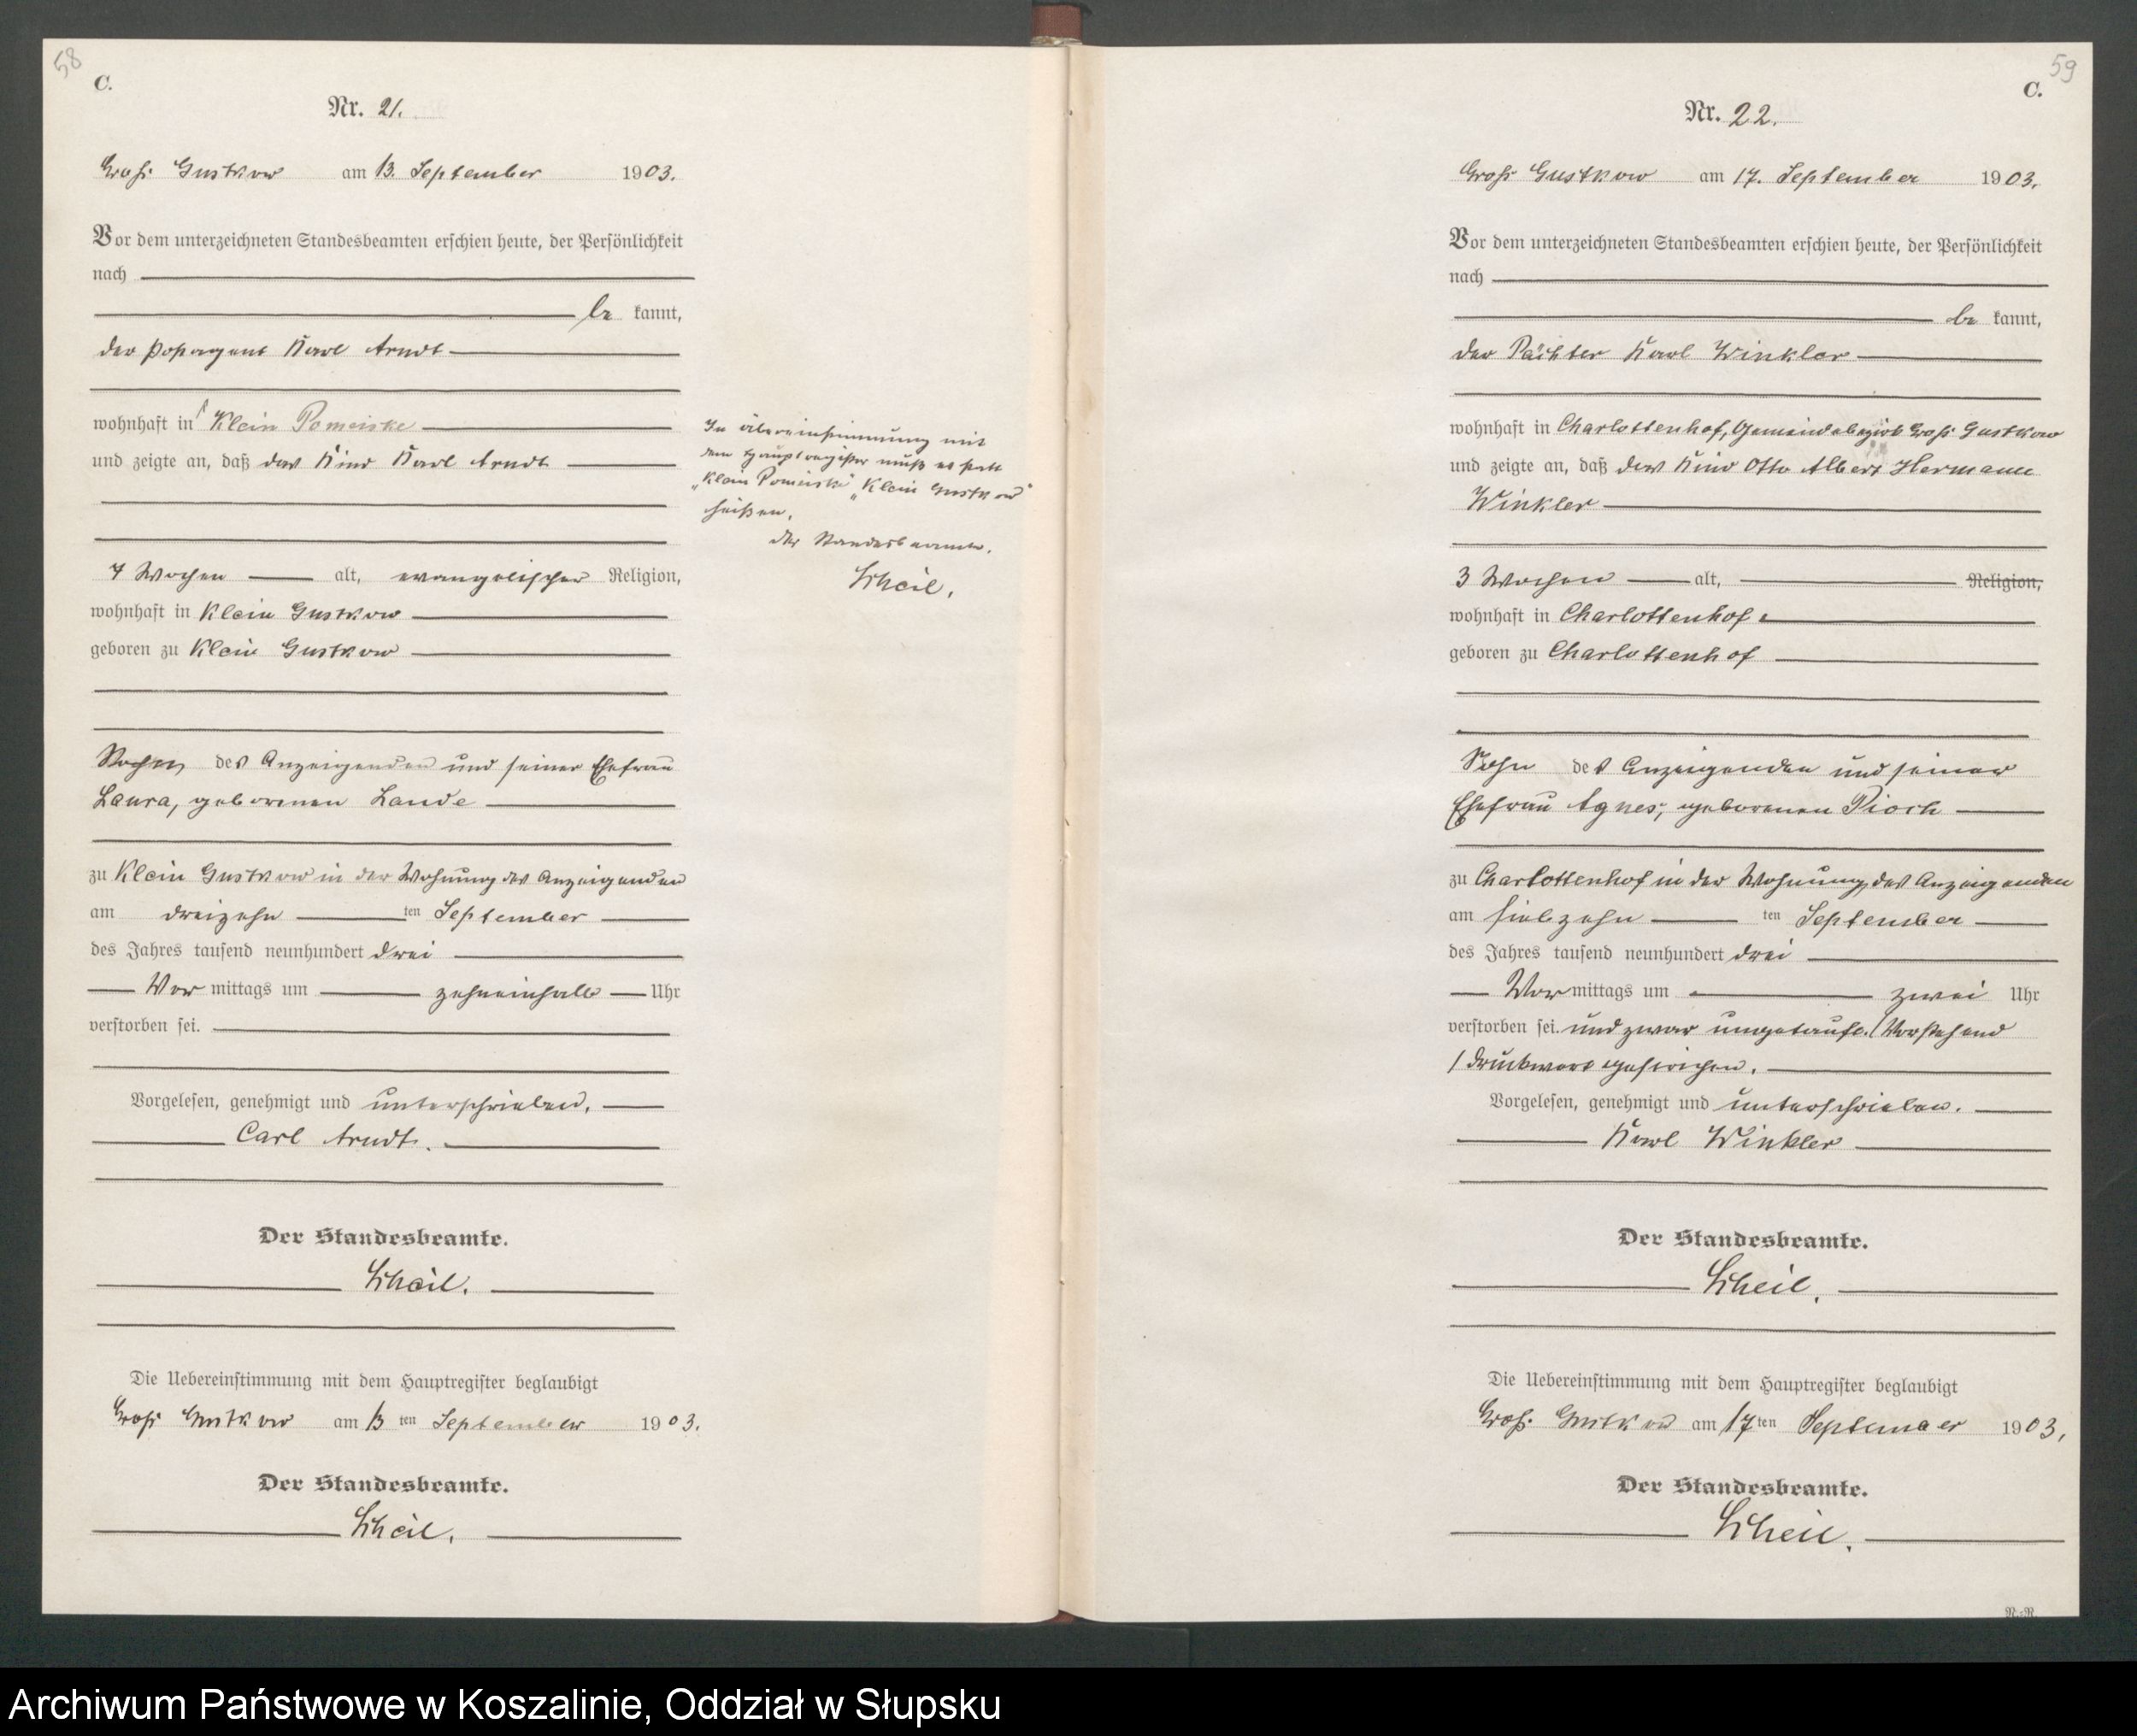 58
C.
Nr. 21.
Groß Gustkow am 13. September 1903.
Vor dem unterzeichneten Standesbeamten erschien heute, der Persönlichkeit
nach
be kannt,
der Postagent Karl Arndt
wohnhaft in Klein Pomeiske
und zeigte an, daß das Kind Karl Arndt
7 Wochen alt, evangelischer Religion,
wohnhaft in Klein Gustkow
geboren zu Klein Gustkow
Sohn des Anzeigenden und seiner Ehefrau
Laura, geborenen Lande
zu Klein Gustkow in der Wohnung des Anzeigenden
am dreizehn ten September
des Jahres tausend neunhundert drei
Vor mittags um zehneinhalb Uhr
verstorben sei.
Vorgelesen, genehmigt und unterschrieben.
Carl Arndt.
Der Standesbeamte.
Scheil.
Die Uebereinstimmung mit dem Hauptregister beglaubigt
Groß Gustkow am 13 ten September 1903.
Der Standesbeamte.
Scheil.
In Übereinstimmung mit
dem Hauptregister muß es statt
"Klein Pomeiske" "Klein Gustkow"
heißen.
Der Standesbeamte.
Scheil.
59
C.
Nr. 22.
Groß Gustkow am 17. September 1903.
Vor dem unterzeichneten Standesbeamten erschien heute, der Persönlichkeit
nach
be kannt,
der Pächter Karl Winkler
wohnhaft in Charlottenhof, Gemeindebezirk Groß Gustkow
und zeigte an, daß das Kind Otto Albert Hermann
Winkler
3 Wochen alt, Religion,
wohnhaft in Charlottenhof
geboren zu Charlottenhof
Sohn des Anzeigenden und seiner
Ehefrau Agnes, geborenen Pioch
zu Charlottenhof in der Wohnung des Anzeigenden
am siebzehn ten September
des Jahres tausend neunhundert drei
Vor mittags um zwei Uhr
verstorben sei. und zwar ungetauft. Vorstehend
1 Druckwort gestrichen.
Vorgelesen, genehmigt und unterschrieben.
Karl Winkler
Der Standesbeamte.
Scheil.
Die Uebereinstimmung mit dem Hauptregister beglaubigt
Groß Gustkow am 17ten September 1903.
Der Standesbeamte.
Scheil.
N.-R.
Archiwum Państwowe w Koszalinie, Oddział w Słupsku